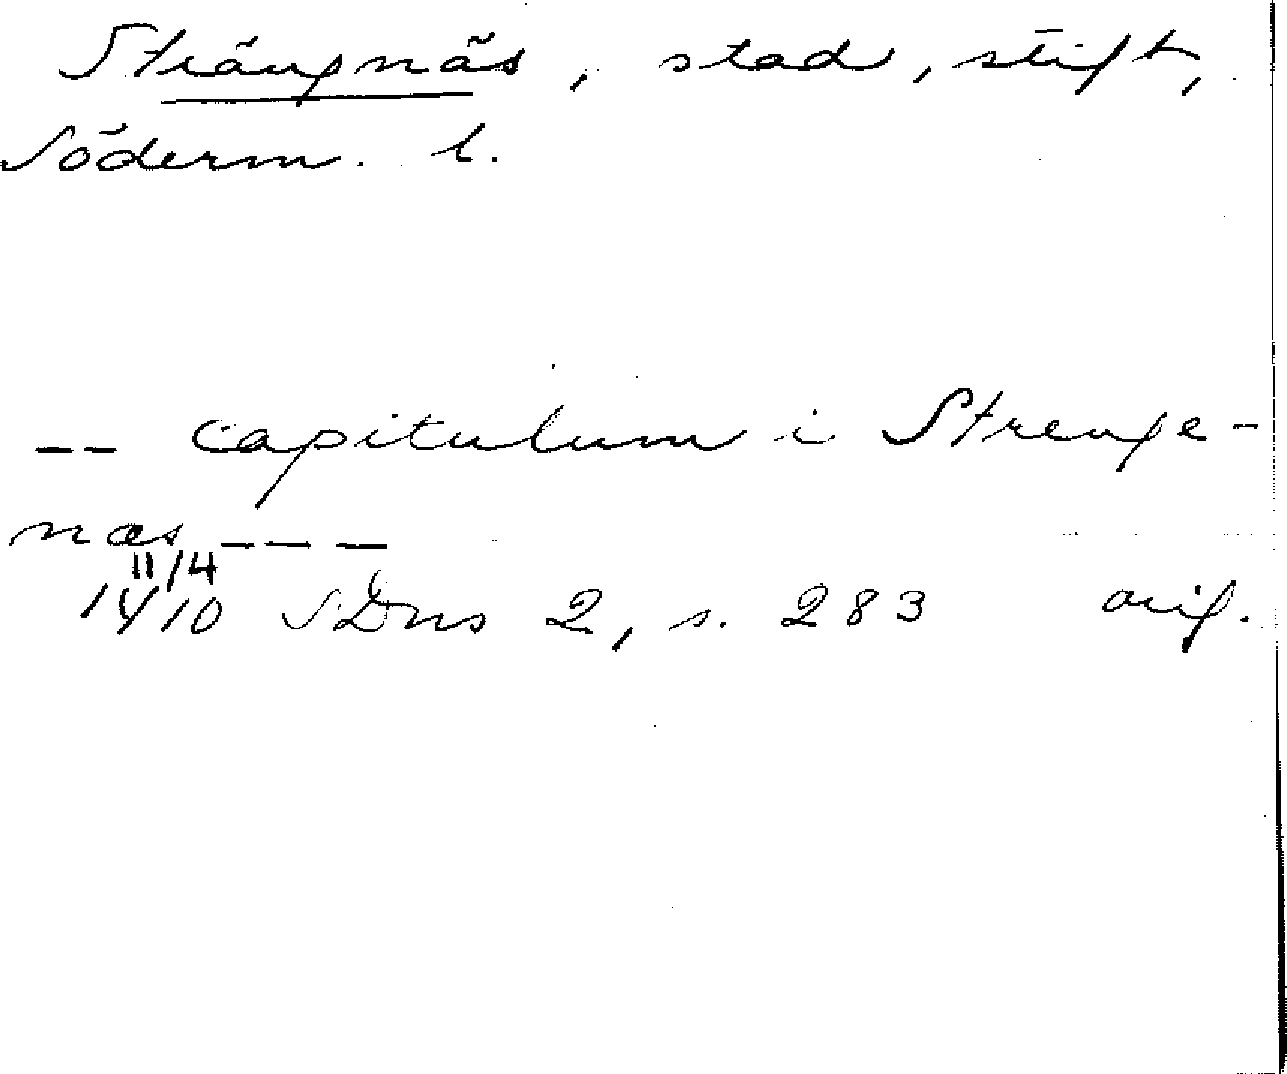 Strängnäs, stad, stift,
Söderm. l.
-- capitulum i Strenge-
næs ---
11/4
1410 SDns 2, s. 283 orig.